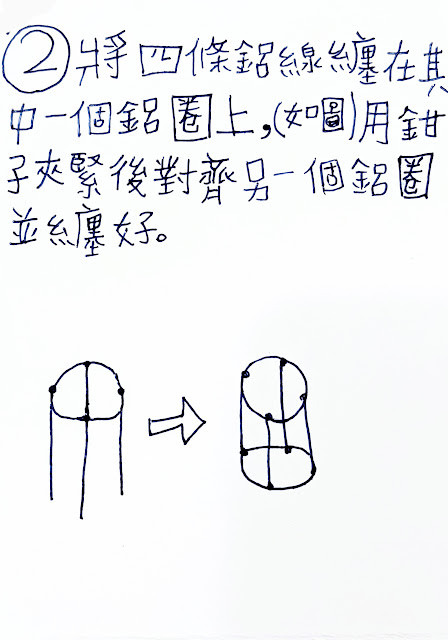 ②將四條鋁線纏在其
中一個鋁圈上,(如圖)用鉗
子夾緊後對齊另一個鋁圈
並纏好。